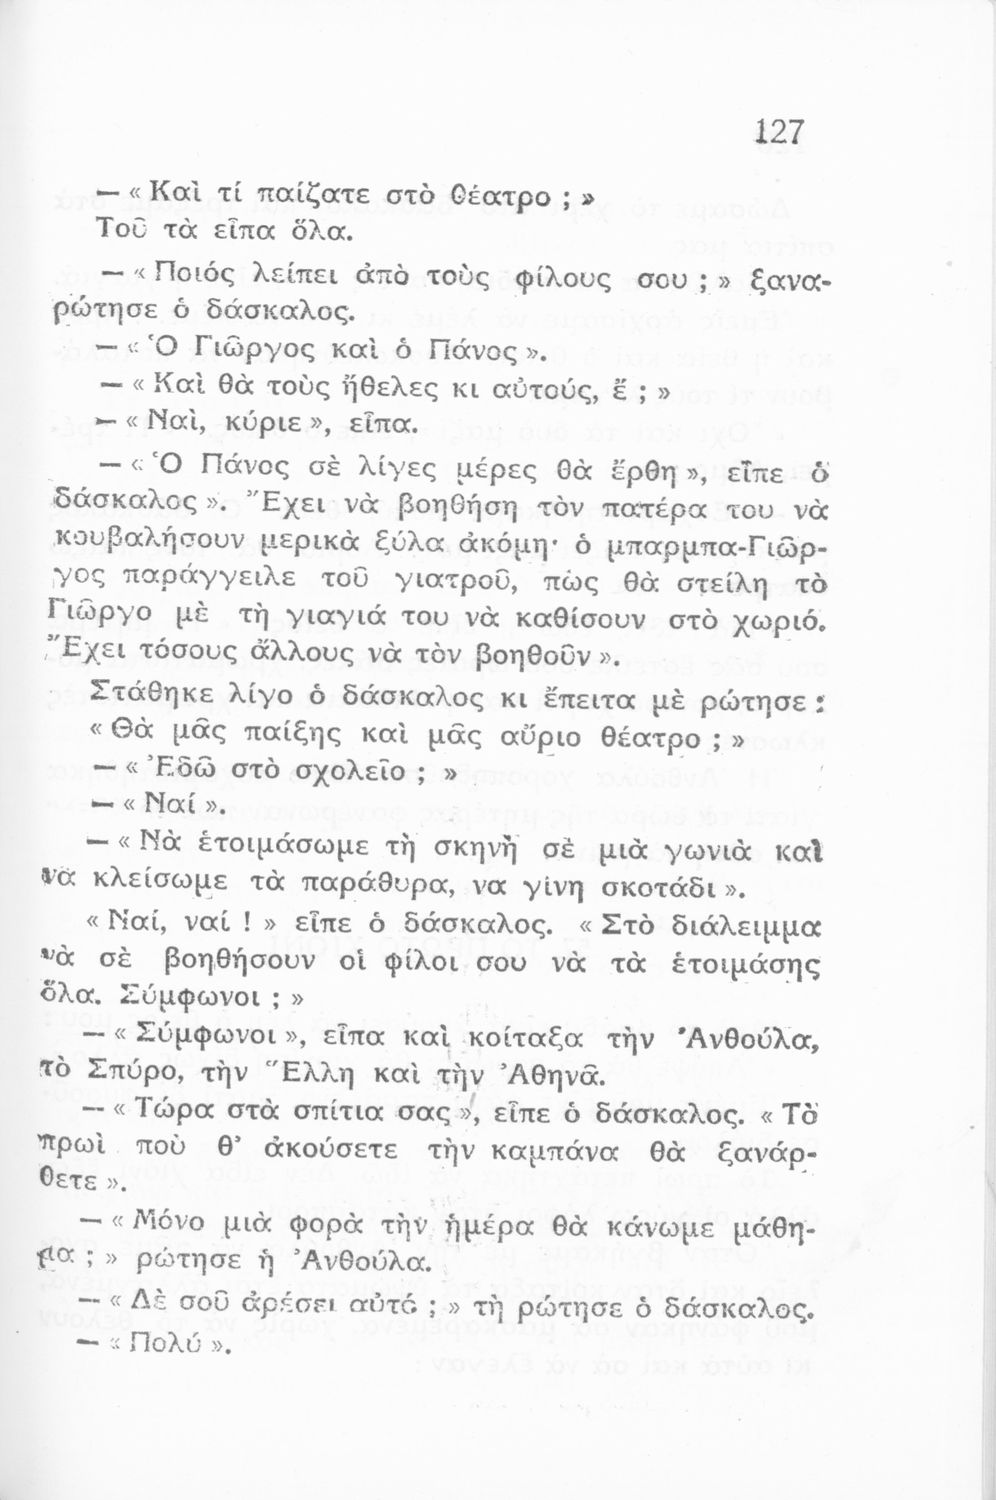 127
— « Καὶ τί παίζατε στὸ θέατρο ; »
Τοῦ τὰ εἶπα ὅλα.
— « Ποιός λείπει ἀπὸ τοὺς φίλους σου ; » ξανα-
ρώτησε ὁ δάσκαλος.
— « Ὁ Γιῶργος καὶ ὁ Πάνος ».
— « Καὶ θὰ τοὺς ἤθελες κι αὐτούς, ἔ ; »
— « Ναὶ, κύριε », εἶπα.
— « Ὁ Πάνος σὲ λίγες μέρες θὰ ἔρθη », εἶπε ὁ
δάσκαλος ». Ἔχει νὰ βοηθήση τὸν πατέρα του νὰ
κουβαλήσουν μερικὰ ξύλα ἀκόμη· ὁ μπαρμπα-Γιῶρ-
γος παράγγειλε τοῦ γιατροῦ, πὼς θὰ στείλη τὸ
Γιῶργο μὲ τὴ γιαγιά του νὰ καθίσουν στὸ χωριό.
Ἔχει τόσους ἄλλους νὰ τὸν βοηθοῦν ».
Στάθηκε λίγο ὁ δάσκαλος κι ἔπειτα μὲ ρώτησε :
« Θὰ μᾶς παίξης καὶ μᾶς αὔριο θέατρο ; »
— « Ἐδῶ στὸ σχολεῖο ; »
— « Ναί ».
— « Νὰ ἑτοιμάσωμε τὴ σκηνὴ σὲ μιὰ γωνιὰ καὶ
νὰ κλείσωμε τὰ παράθυρα, να γίνη σκοτάδι ».
« Ναί, ναί ! » εἶπε ὁ δάσκαλος. « Στὸ διάλειμμα
νὰ σὲ βοηθήσουν οἱ φίλοι σου νὰ τὰ ἑτοιμάσης
ὅλα. Σύμφωνοι ; »
— « Σύμφωνοι », εἶπα καὶ κοίταξα τὴν Ἀνθούλα,
τὸ Σπύρο, τὴν Ἕλλη καὶ τὴν Ἀθηνᾶ.
— « Τώρα στὰ σπίτια σας », εἶπε ὁ δάσκαλος. « Τὸ
πρωὶ ποὺ θ᾽ ἀκούσετε τὴν καμπάνα θὰ ξανάρ-
θετε ».
— « Μόνο μιὰ φορὰ τὴν ἡμέρα θὰ κάνωμε μάθη-
μα ; » ρώτησε ἡ Ἀνθούλα.
— « Δὲ σοῦ ἀρέσει αὐτό ; » τὴ ρώτησε ὁ δάσκαλος.
— « Πολύ ».